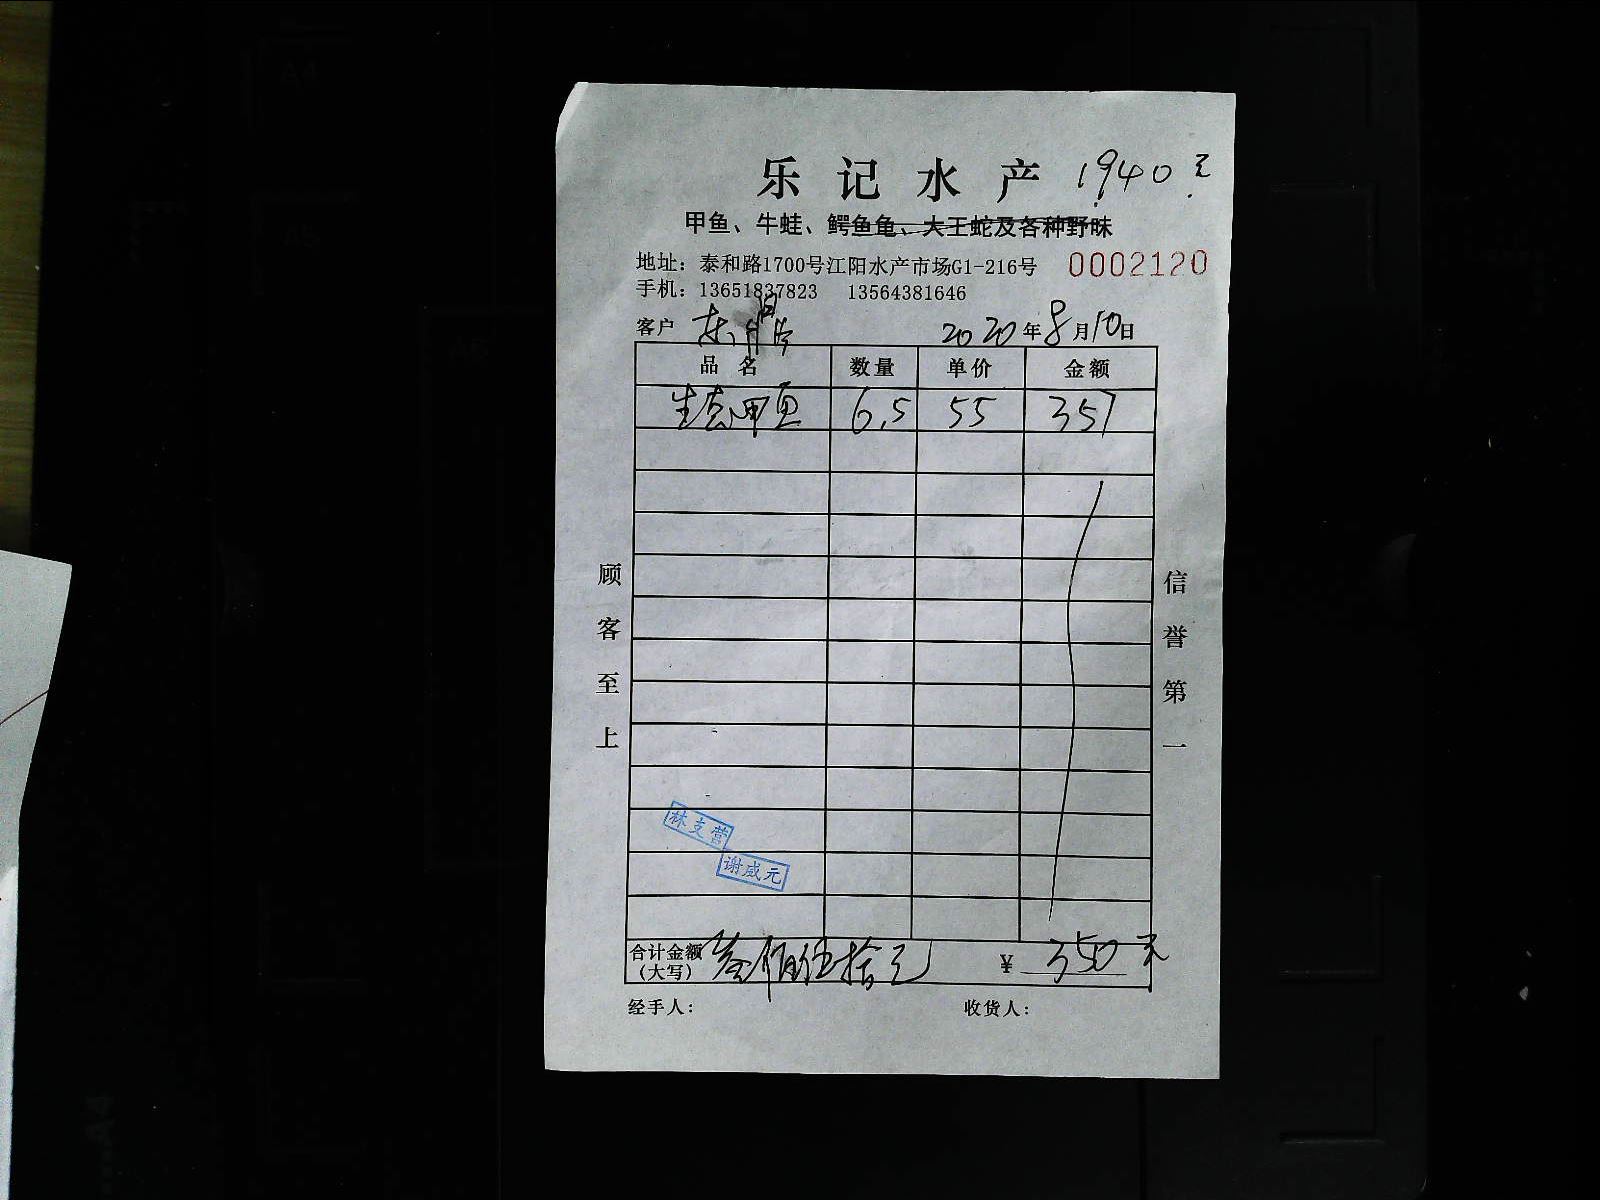 乐记水产 1940元
甲鱼、牛蛙、鳄鱼龟、大王蛇及各种野味
地址：泰和路1700号江阳水产市场G1-216号 0002120
手机：13651837823 13564381646
客户 东鼎 2020年8月10日
品名 数量 单价 金额
生态甲鱼 6.5 55 357
顾客至上
信誉第一
林支营
谢成元
合计金额（大写） 叁佰伍拾元 ¥ 350元
经手人： 收货人：